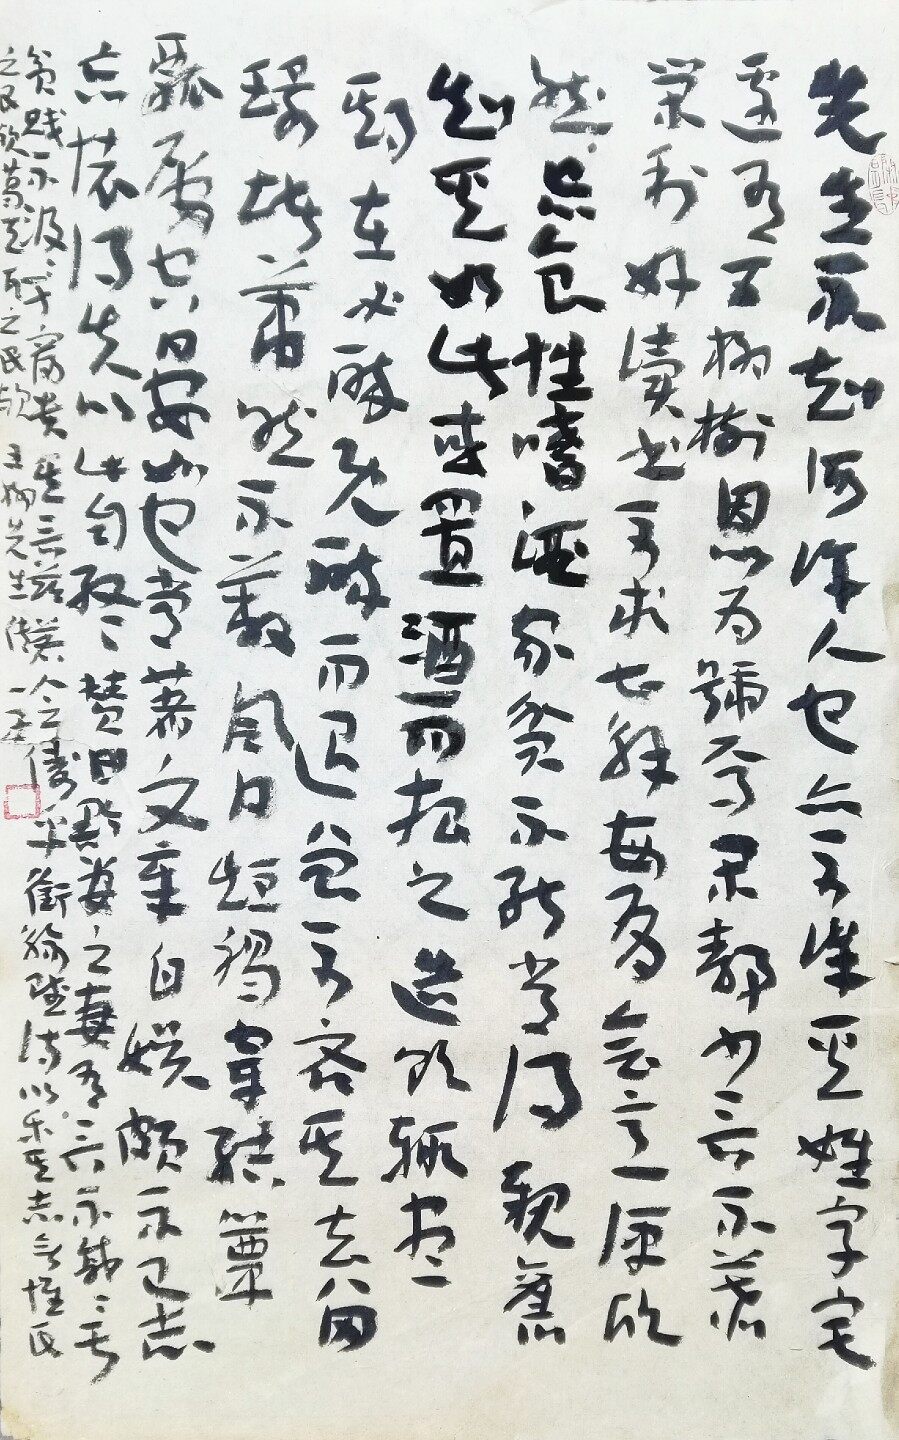 先生不知何許人也亦不詳其姓字宅
邊有五柳樹因以為號焉閑靜少言不慕
榮利好讀書不求甚解每有會意便欣
然忘食性嗜酒家貧不能常得親舊
知其如此或置酒而招之造飲輒盡
期在必醉既醉而退曾不吝其去留
環堵蕭然不蔽風日短褐穿結簞
瓢屢空晏如也常著文章自娛頗示己志
忘懷得失以此自終贊曰黔婁之妻有言不戚戚于
貧賤不汲汲于富貴其言茲若人之儔乎銜觴賦詩以樂其志無懷氏
之民歟葛天氏之民歟 五柳先生傳